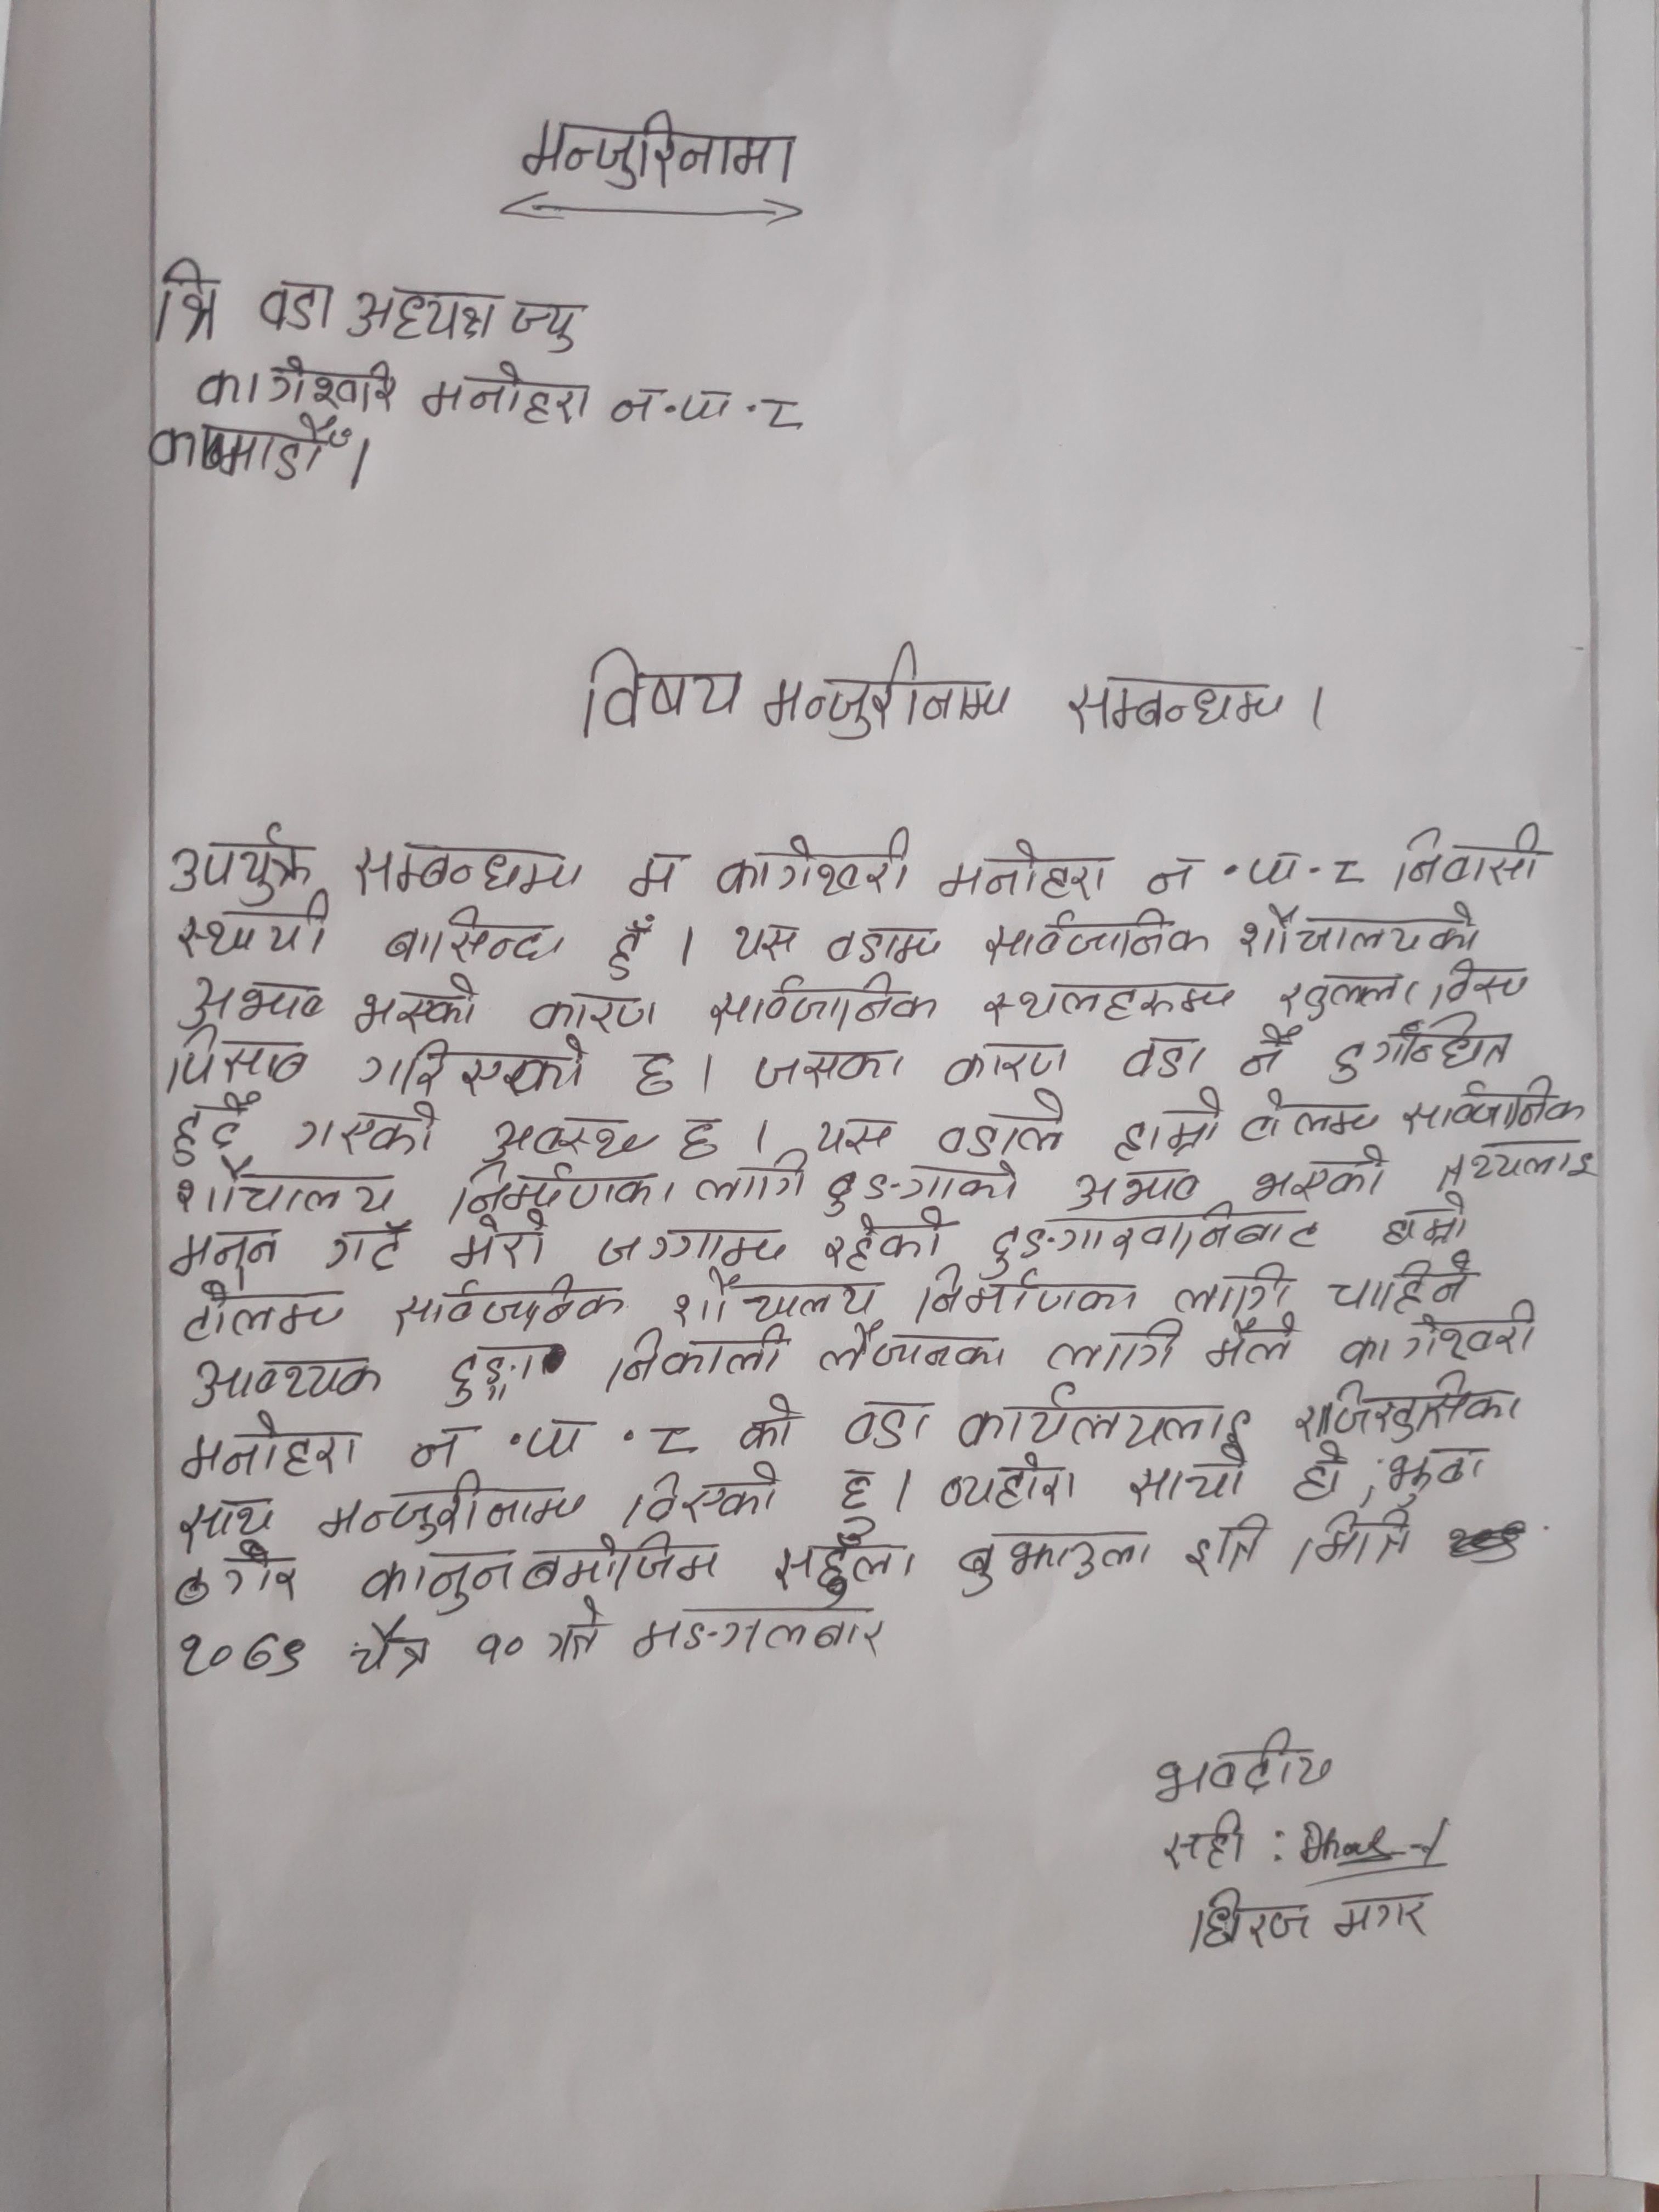 मन्जुरिनामा
श्रि वडा अध्यक्ष ज्यु
कागेश्वरि मनोहरा न.पा.८
काठमाडौँ।
विषय मन्जुरीनामा सम्बन्धमा।
उपर्युक्त सम्बन्धमा म कागेश्वरी मनोहरा न.पा.८ निवासी
स्थायी बासिन्दा हुँ। यस वडामा सार्वजानिक शौचालयको
अभाव भएको कारण सार्वजानिक स्थलहरुमा खुल्ला दिसा
पिसाब गरिएको छ। जसका कारण वडा नै दुर्गन्धित
हुदैँ गएको अवस्था छ। यस वडाले हाम्रो टोलमा सार्वजानिक
शौचालय निर्माणका लागि ढुङ्गाको अभाव भएको तथ्यलाइ
मनन गर्दै मेरो जग्गामा रहेको ढुङ्गाखानिबाट हाम्रो
टोलमा सार्वजनिक शौचालय निर्माणका लागि चाहिने
आवश्यक ढुङ्गा निकाली लैजानका लागि मैले कागेश्वरी
मनोहरा न.पा.८ को वडा कार्यलयलाइ राजिखुसिका
साथ मन्जुरीनामा दिएको छु। व्यहोरा साचो हो, झुठा
ठगेर कानुनबमोजिम सहुँला बुझाउला इति मिति
२०७९ चैत्र १० गते मङ्गलबार
भवदीय
सही :
धिरज मगर